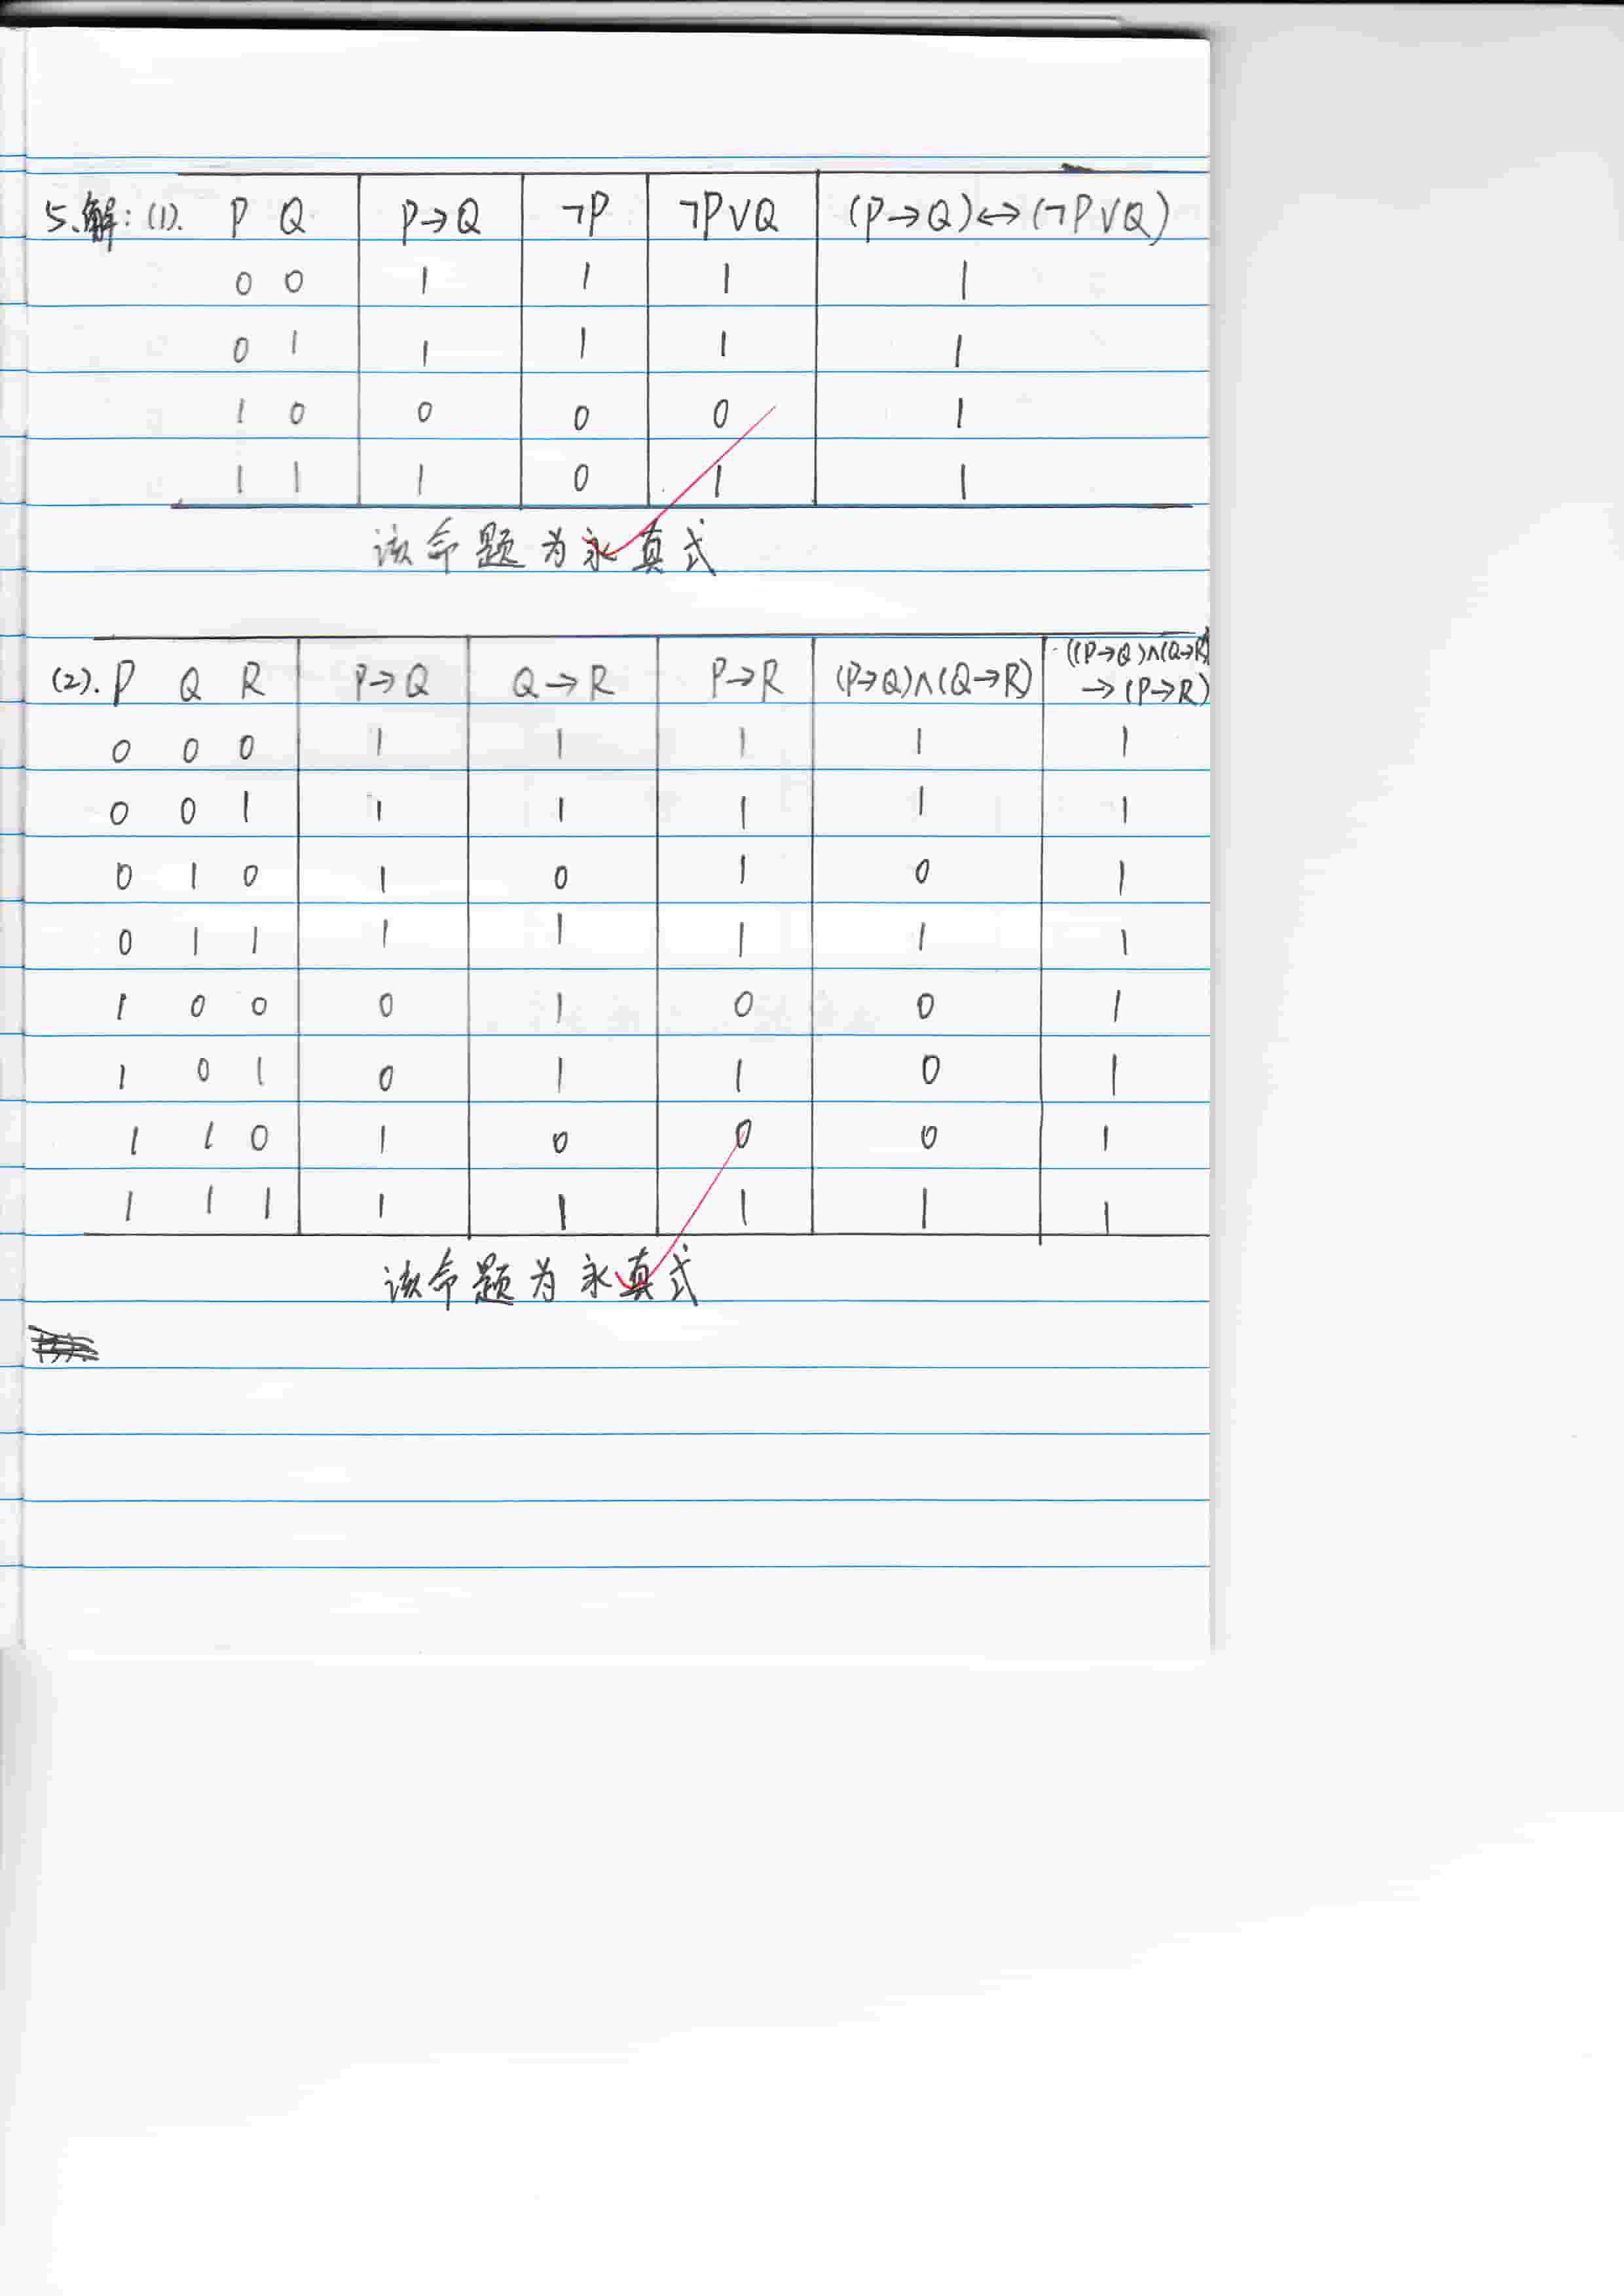 5.解：(1). P Q P→Q ¬P ¬P∨Q (P→Q)↔(¬P∨Q)
0 0 1 1 1 1
0 1 1 1 1 1
1 0 0 0 0 1
1 1 1 0 1 1
该命题为永真式
(2). P Q R P→Q Q→R P→R (P→Q)∧(Q→R) ((P→Q)∧(Q→R)
→(P→R)
0 0 0 1 1 1 1 1
0 0 1 1 1 1 1 1
0 1 0 1 0 1 0 1
0 1 1 1 1 1 1 1
1 0 0 0 1 0 0 1
1 0 1 0 1 1 0 1
1 1 0 1 0 0 0 1
1 1 1 1 1 1 1 1
该命题为永真式